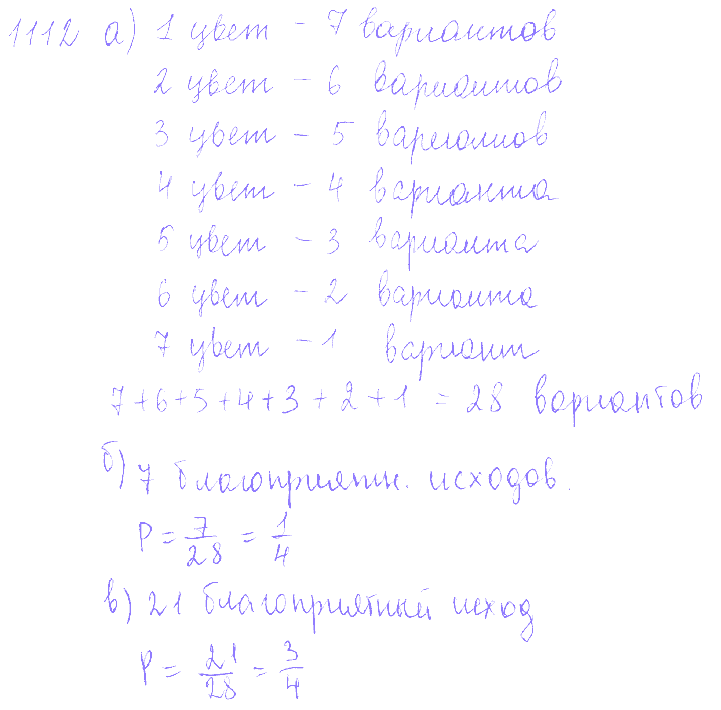 1112 а) 1 цвет – 7 вариантов
2 цвет – 6 вариантов
3 цвет – 5 вариантов
4 цвет – 4 варианта
5 цвет – 3 варианта
6 цвет – 2 варианта
7 цвет – 1 вариант
7+6+5+4+3+2+1 = 28 вариантов
б) 7 благоприятн. исходов.
P = 7/28 = 1/4
в) 21 благоприятный исход
P = 21/28 = 3/4